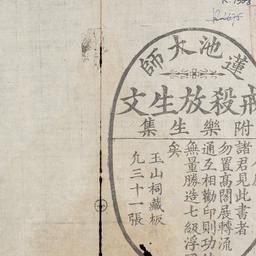 蓮池大師
戒殺放生文
附樂生集
諸君見此書者
勿置高閣展轉流
通互相勸印則功
無量勝造七級浮
矣
玉山祠藏板
九三十一張